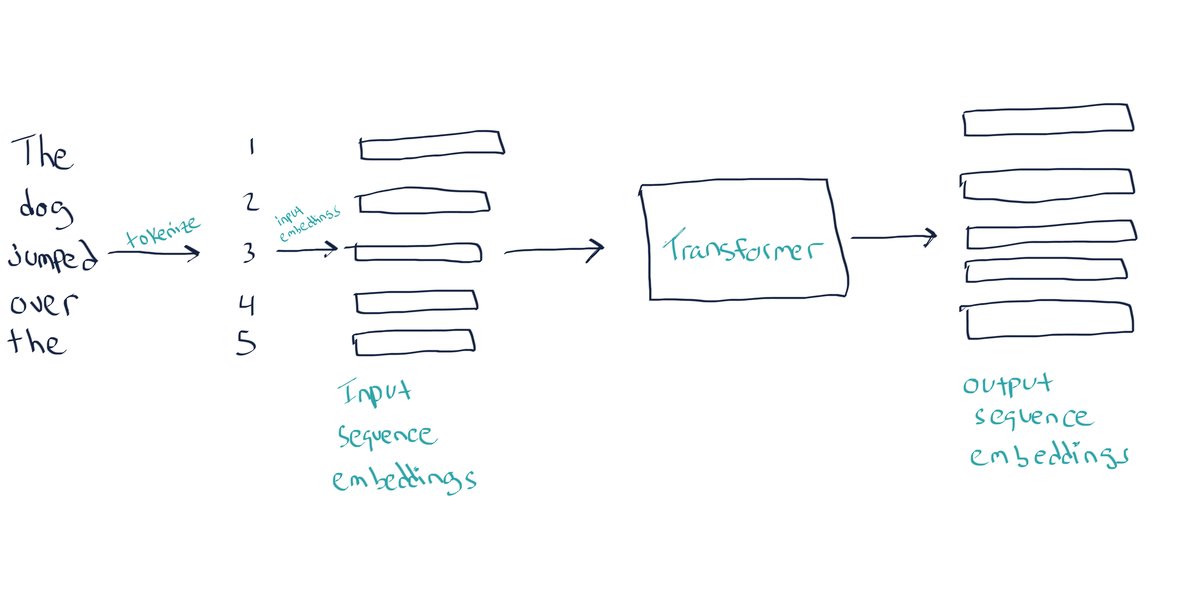 The
dog
jumped
over
the
tokenize
1
2
3
4
5
input
embeddings
Input
sequence
embeddings
Transformer
output
sequence
embeddings